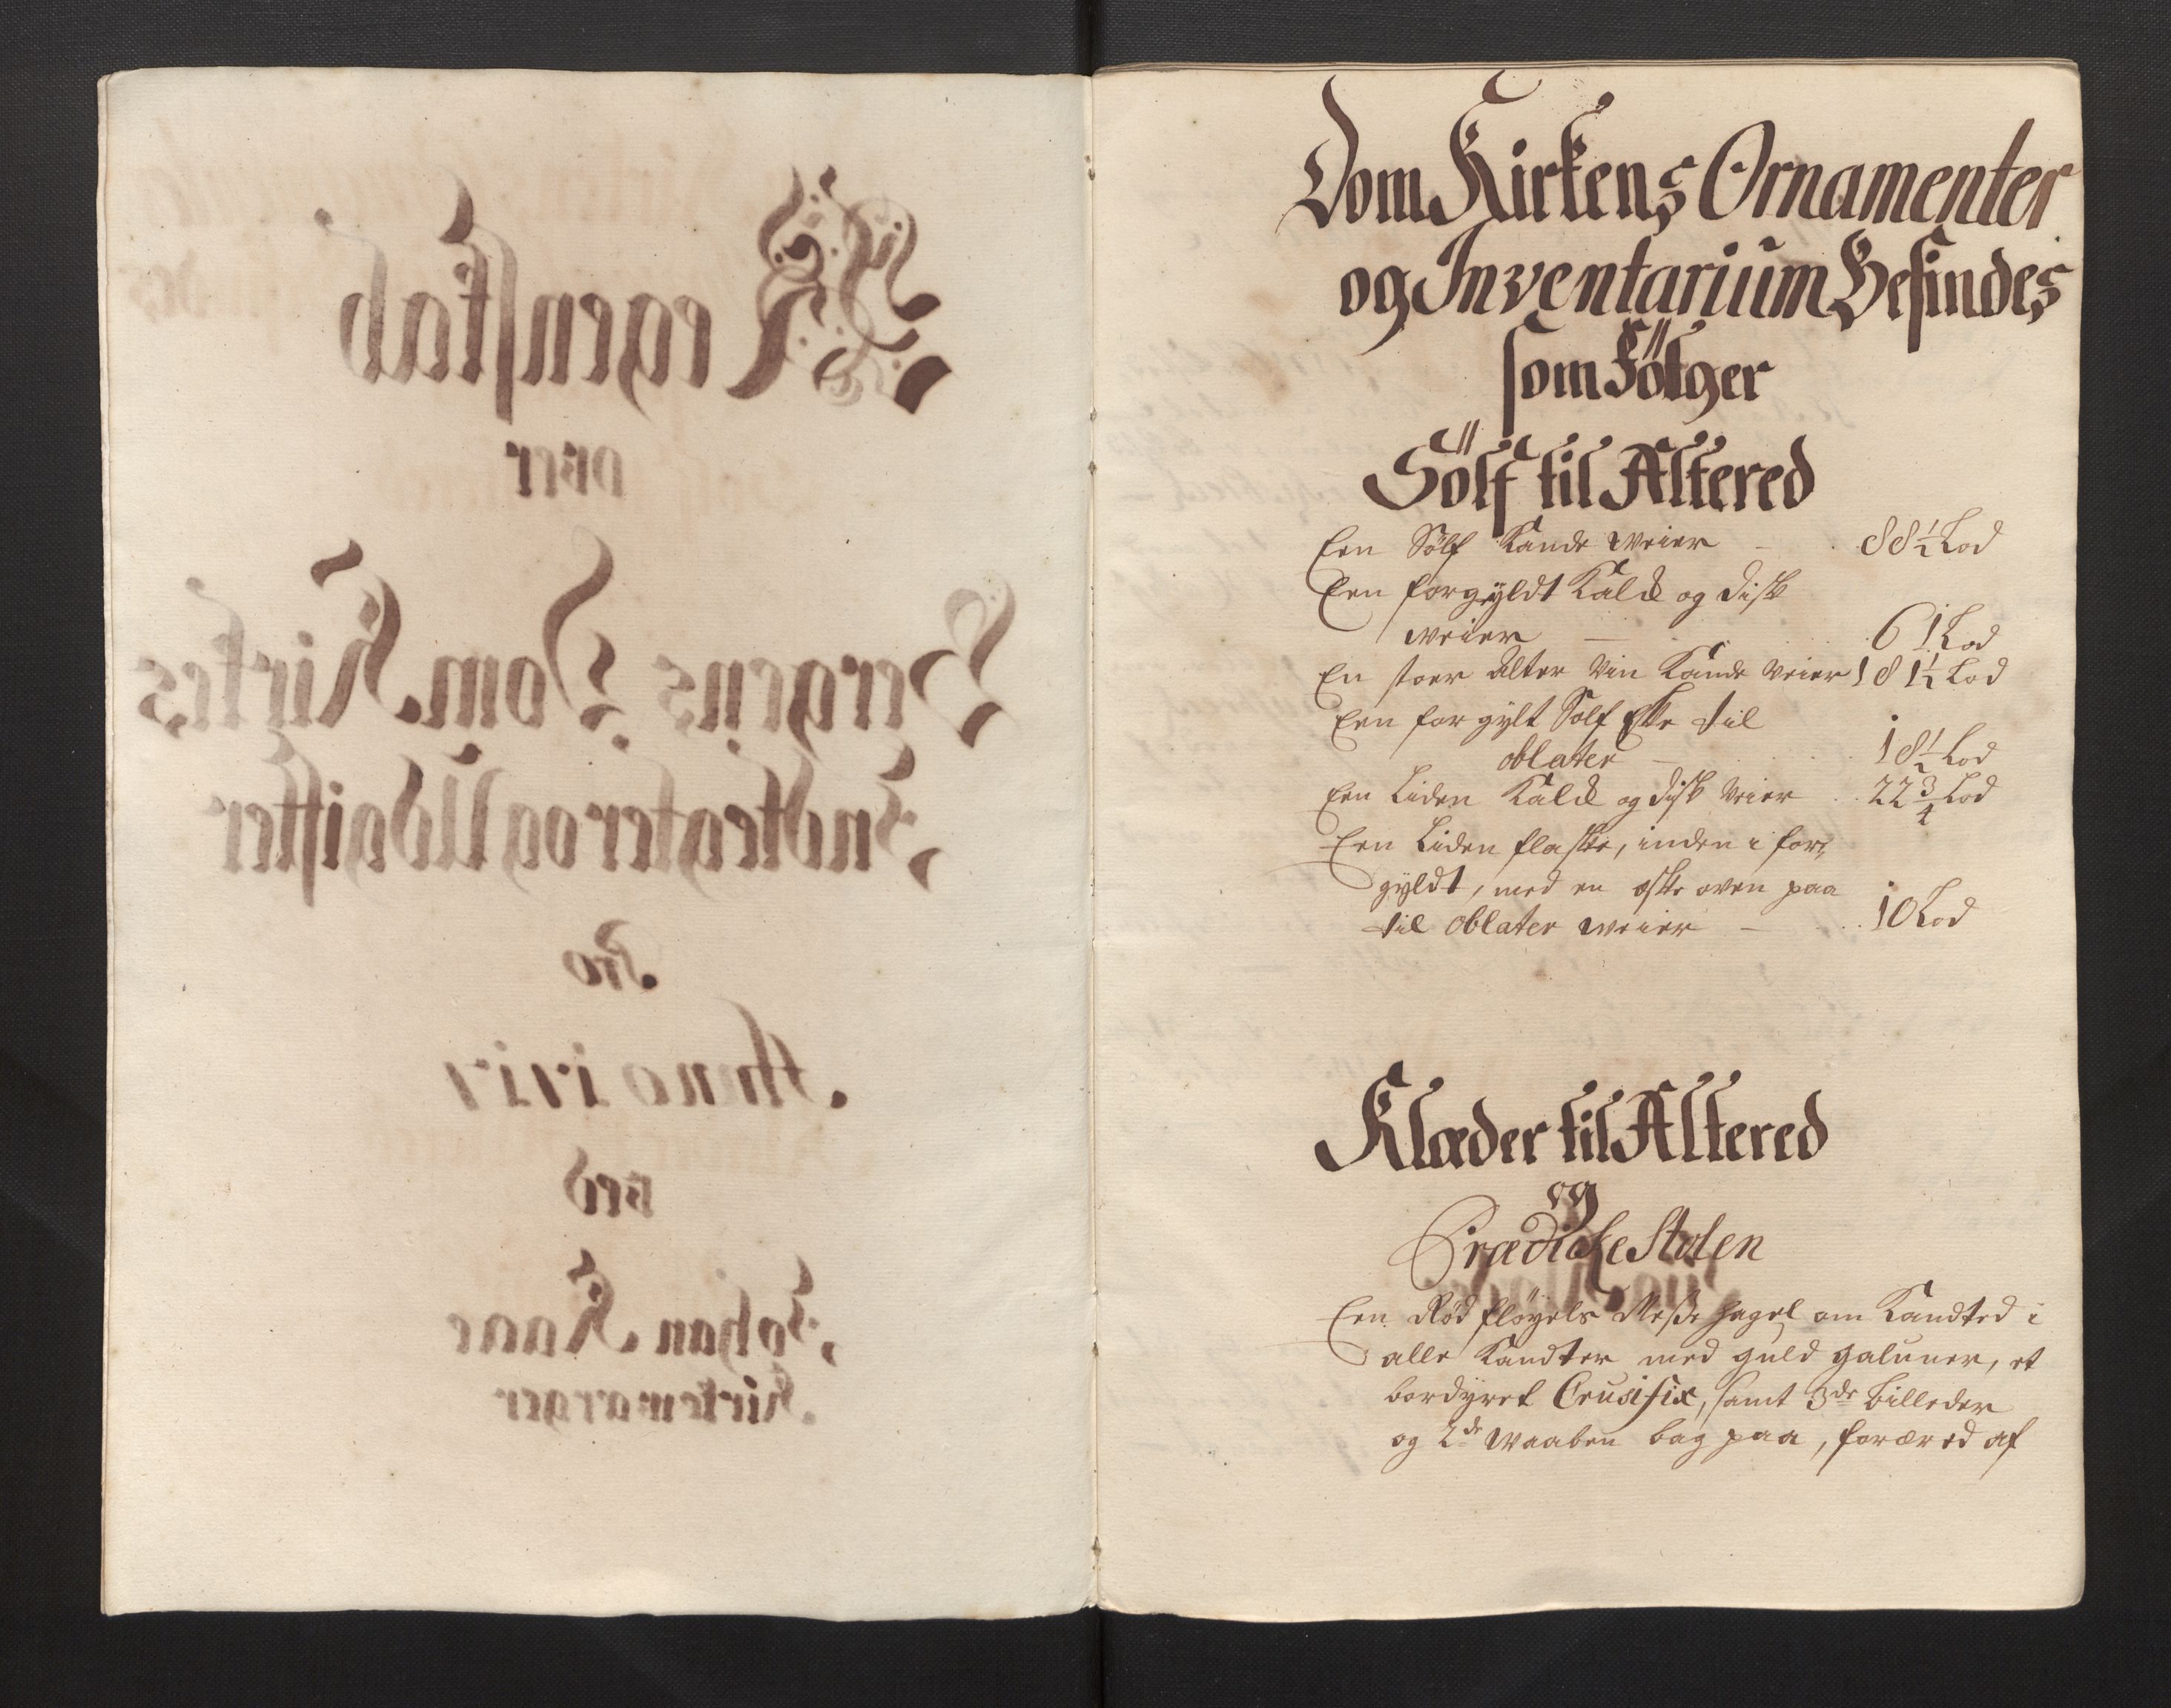 Regenskab
over
Bergens Dom Kirkes
Indtegter og Udgifter
Pro
Anno 1717
ved
Johan Kaae
Kirkeverger
Dom Kirkens Ornamenter
og Inventarium Befindes
som Fölger
Sölf til Altered
Een Sölf Kande weier - 88½ Lod
Een forgÿldt Kalck og Disk
weier - 61 Lod
En stoer Alter Vin Kande veier 181½ Lod
Een for gÿlt Sölf Eske til
oblater - 18½ Lod
Een Liden Kalck og Disk veier 22¾ Lod
Een Liden flaske, inden i for,,
gÿldt, med en Eske oven paa
til Oblater weier - 10 Lod
Klæder til Altered
og
PrædickeStolen
Een Röd flöÿels Messe Hagel om Kandted i
alle Kandter med guld galuner, et
bordÿret Crusifix, samt 3de billeder
og 2de Waaben bag paa, foræred af